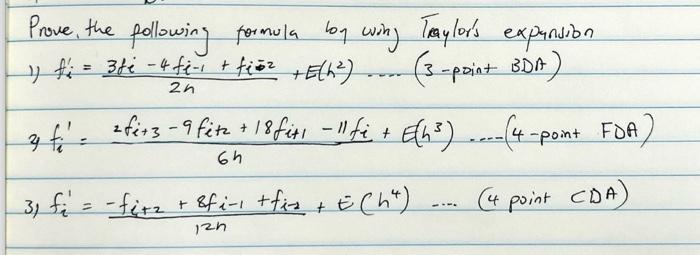 Prove, the following formula by using Traylor's expansion
1) fi' = 3fi - 4fi-1 + fi-2 / 2h + E(h²) .... (3-point BDA)
2) fi' = 2fi+3 - 9fi+2 + 18fi+1 - 11fi / 6h + E(h³) .....(4-point FDA)
3) fi' = -fi+2 + 8fi-1 + fi-2 / 12h + E(h⁴) .... (4 point CDA)